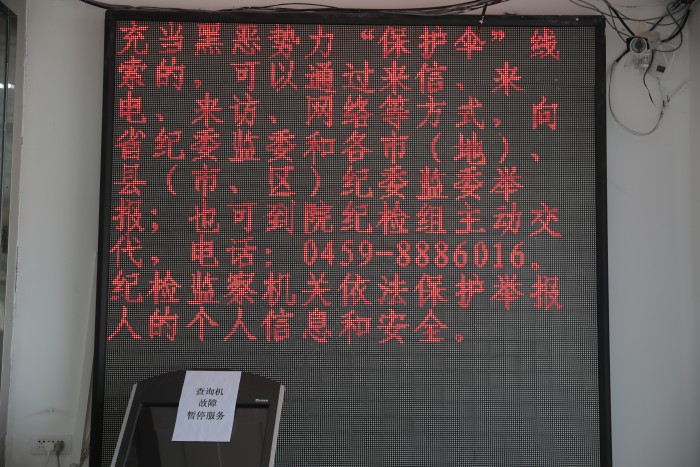 充当黑恶势力“保护伞”线
索的，可以通过来信、来
电、来访、网络等方式，向
省纪委监委和各市（地）、
县（市、区）纪委监委举
报；也可到院纪检组主动交
代，电话：0459-8886016。
纪检监察机关依法保护举报
人的个人信息和安全。
查询机
故障
暂停服务